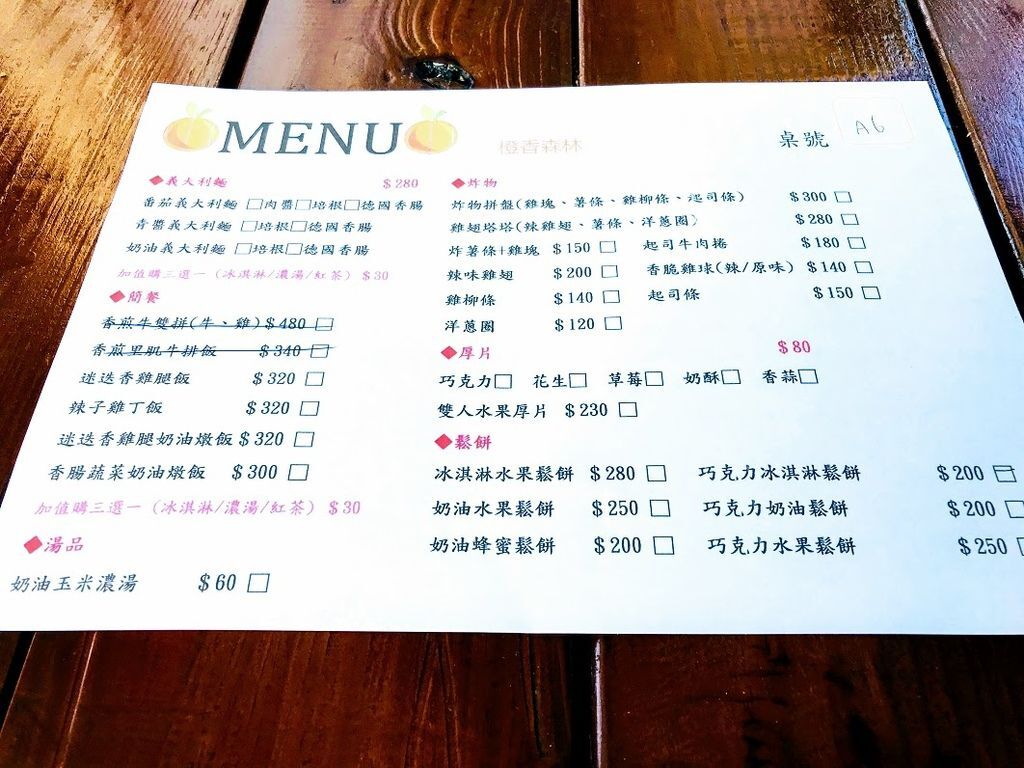 MENU 橙香森林 桌號 A6
◆義大利麵 $280
番茄義大利麵 □肉醬□培根□德國香腸
青醬義大利麵 □培根□德國香腸
奶油義大利麵 □培根□德國香腸
加值購三選一 (冰淇淋/濃湯/紅茶) $30
◆簡餐
香煎牛雙拼(牛、雞) $480 □
香煎里肌牛排飯 $340 □
迷迭香雞腿飯 $320 □
辣子雞丁飯 $320 □
迷迭香雞腿奶油燉飯 $320 □
香腸蔬菜奶油燉飯 $300 □
加值購三選一 (冰淇淋/濃湯/紅茶) $30
◆湯品
奶油玉米濃湯 $60 □
◆炸物
炸物拼盤(雞塊、薯條、雞柳條、起司條) $300 □
雞翅塔塔(辣雞翅、薯條、洋蔥圈) $280 □
炸薯條+雞塊 $150 □ 起司牛肉捲 $180 □
辣味雞翅 $200 □ 香脆雞球(辣/原味) $140 □
雞柳條 $140 □ 起司條 $150 □
洋蔥圈 $120 □
◆厚片 $80
巧克力□ 花生□ 草莓□ 奶酥□ 香蒜□
雙人水果厚片 $230 □
◆鬆餅
冰淇淋水果鬆餅 $280 □ 巧克力冰淇淋鬆餅 $200 □
奶油水果鬆餅 $250 □ 巧克力奶油鬆餅 $200 □
奶油蜂蜜鬆餅 $200 □ 巧克力水果鬆餅 $250 □